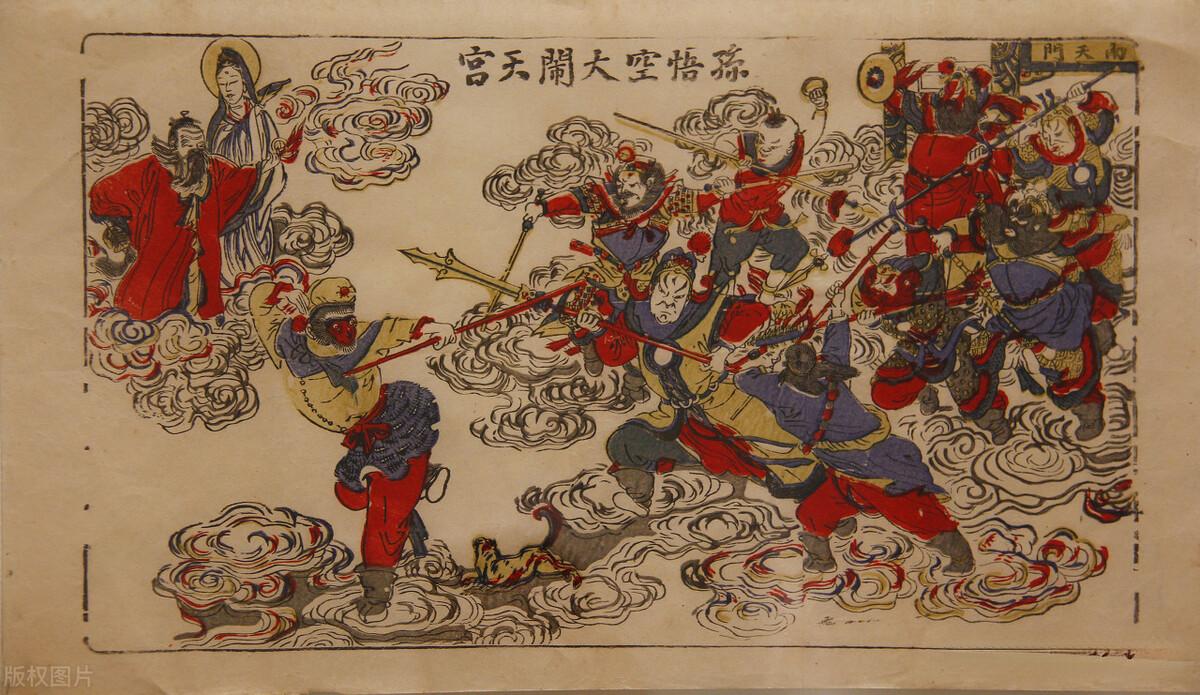 孫悟空大鬧天宫
南天門
版权图片